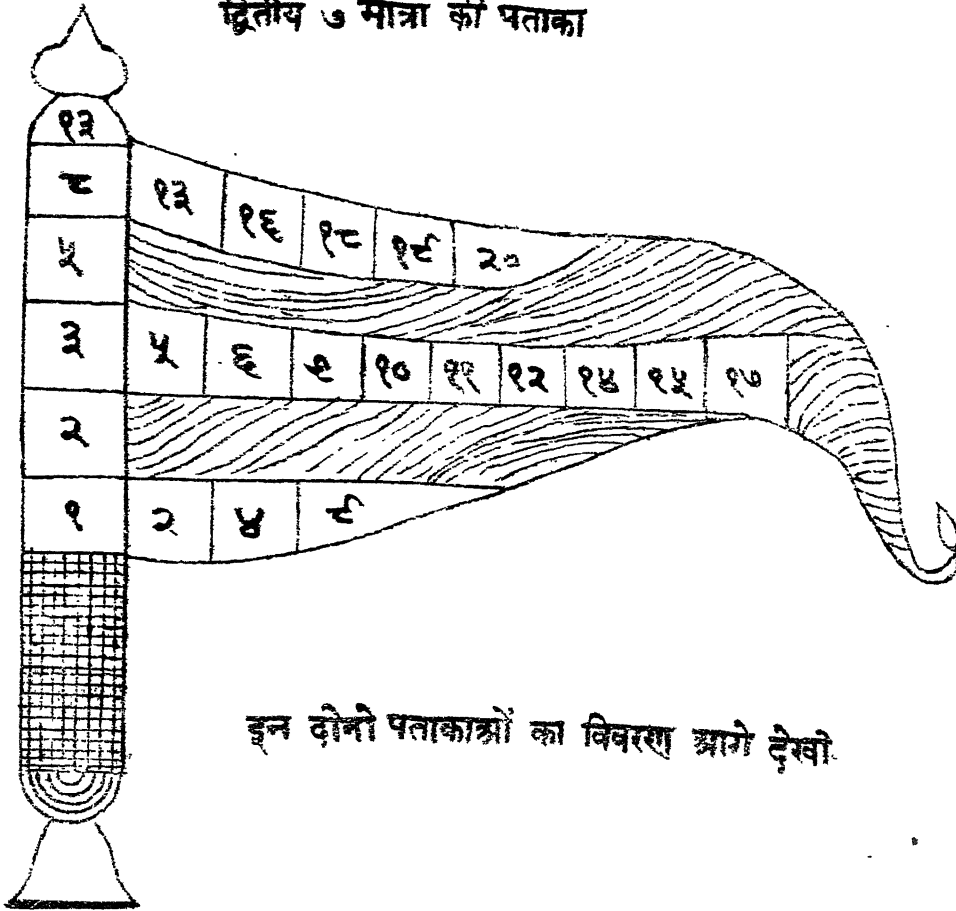 द्वितीय ७ मात्रा की पताका
१३
८ १३ १६ १८ १९ २०
५
३ ५ ६ १० ११ १२ १४ १५ १७
२
१ २ ४ ९
इन दोनो पताकाओं का विवरण आगे देखो